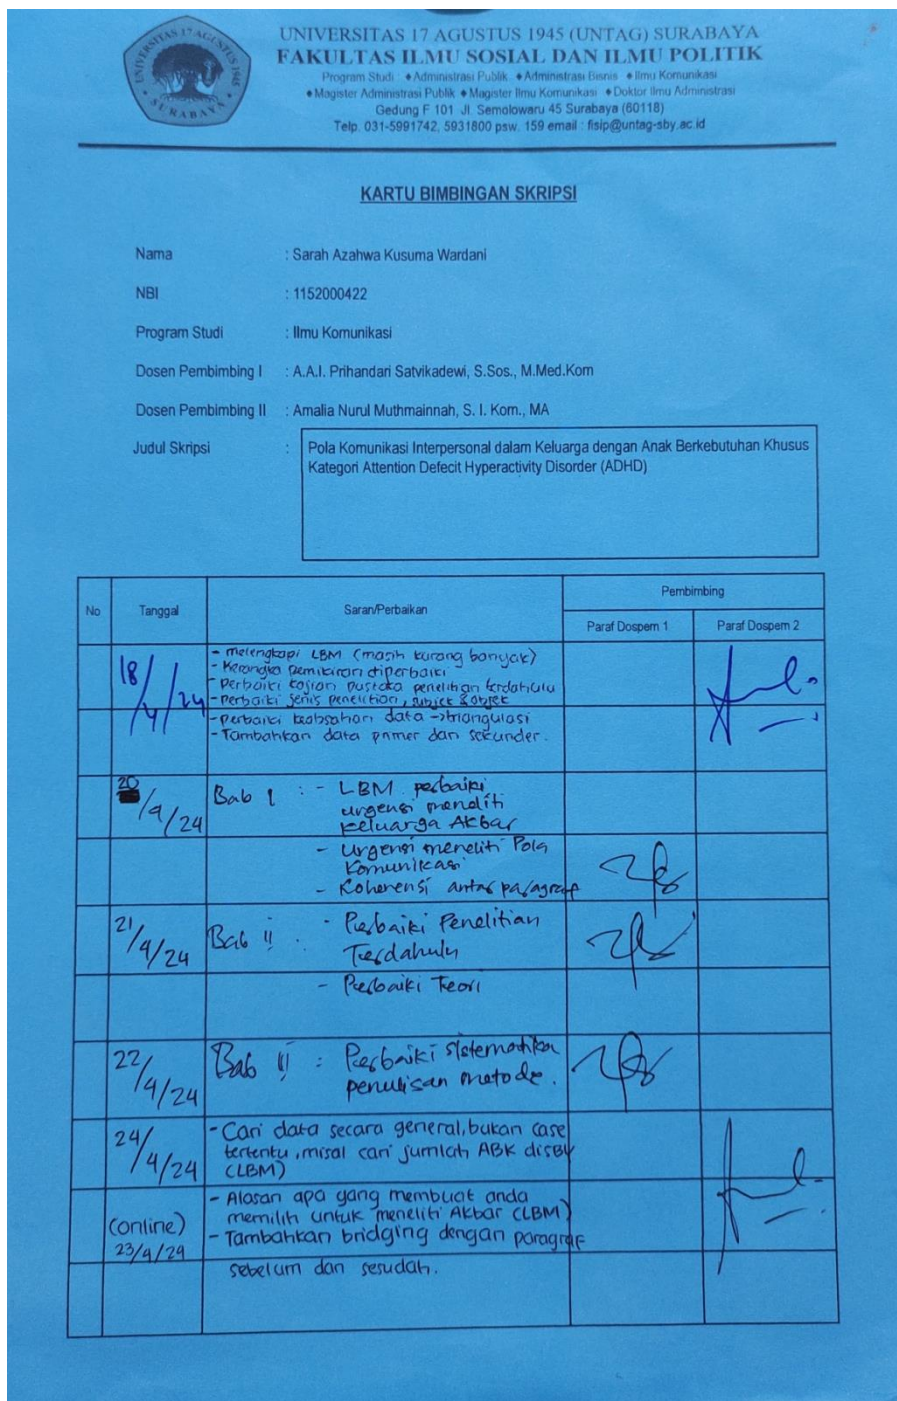 UNIVERSITAS 17 AGUSTUS 1945
SURABAYA
UNIVERSITAS 17 AGUSTUS 1945 (UNTAG) SURABAYA
FAKULTAS ILMU SOSIAL DAN ILMU POLITIK
Program Studi : ◆Administrasi Publik ◆Administrasi Bisnis ◆Ilmu Komunikasi
◆Magister Administrasi Publik ◆Magister Ilmu Komunikasi ◆Doktor Ilmu Administrasi
Gedung F 101 Jl. Semolowaru 45 Surabaya (60118)
Telp. 031-5991742, 5931800 psw. 159 email : fisip@untag-sby.ac.id
KARTU BIMBINGAN SKRIPSI
Nama : Sarah Azahwa Kusuma Wardani
NBI : 1152000422
Program Studi : Ilmu Komunikasi
Dosen Pembimbing I : A.A.I. Prihandari Satvikadewi, S.Sos., M.Med.Kom
Dosen Pembimbing II : Amalia Nurul Muthmainnah, S. I. Kom., MA
Judul Skripsi : Pola Komunikasi Interpersonal dalam Keluarga dengan Anak Berkebutuhan Khusus
Kategori Attention Defecit Hyperactivity Disorder (ADHD)
No Tanggal Saran/Perbaikan Pembimbing
Paraf Dospem 1 Paraf Dospem 2
18/4/24 - melengkapi LBM (masih kurang banyak)
- Kerangka pemikiran diperbaiki
- Perbaiki kajian pustaka penelitian terdahulu
- perbaiki jenis penelitian, subjek & objek
- perbaiki keabsahan data → triangulasi
- Tambahkan data primer dan sekunder.
20/4/24 Bab I : - LBM perbaiki
urgensi meneliti
keluarga Akbar
- Urgensi meneliti Pola
Komunikasi
- Koherensi antar paragraf
21/4/24 Bab II : - Perbaiki Penelitian
Terdahulu
- Perbaiki Teori
22/4/24 Bab III : Perbaiki sistematika
penulisan metode.
24/4/24 - Cari data secara general, bukan case
tertentu, misal cari jumlah ABK diSBY
(LBM)
- Alasan apa yang membuat anda
memilih untuk meneliti Akbar (LBM)
(online) - Tambahkan bridging dengan paragraf
23/4/24 sebelum dan sesudah.